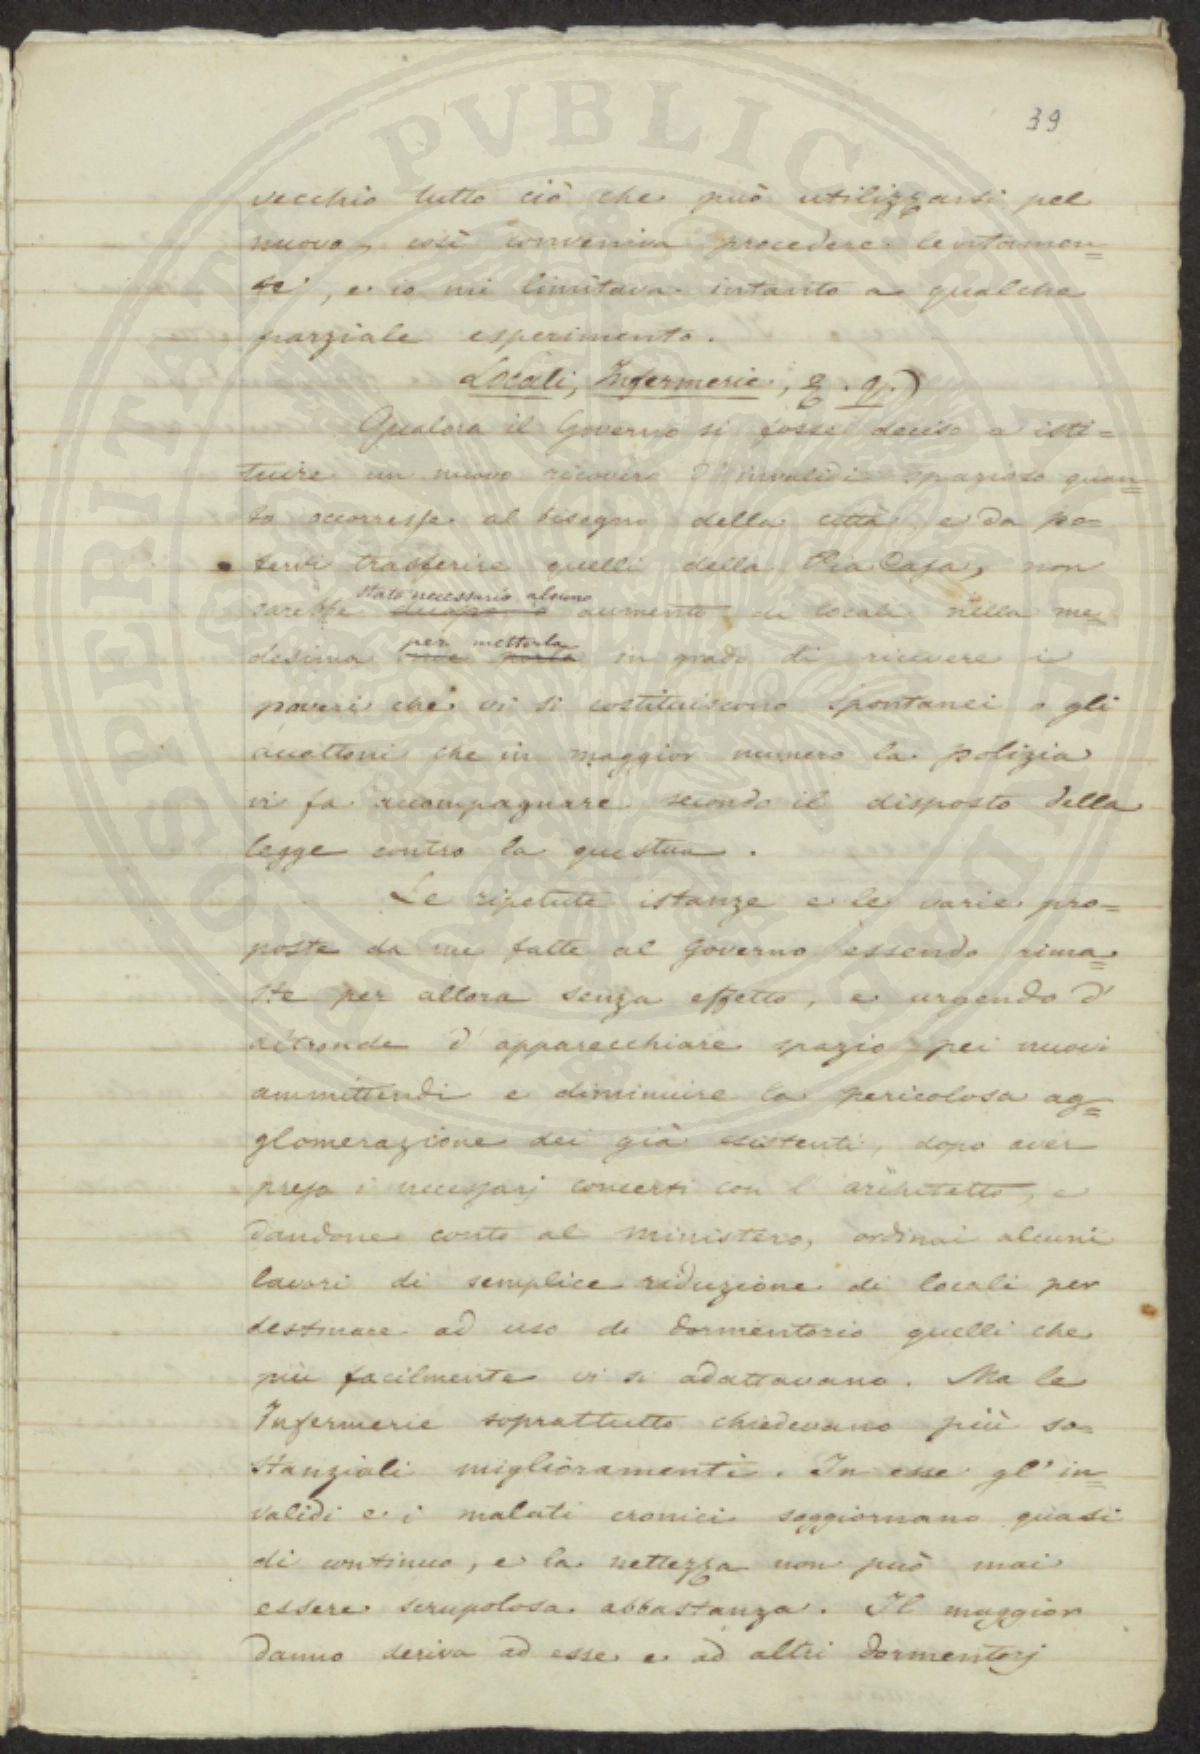 39
vecchio tutto ciò che può utilizzarsi pel
nuovo, così conveniva procedere lentamen=
te, e io mi limitava intanto a qualche
parziale esperimento.
Locali, Infermerie,
Qualora il Governo si fosse deciso a isti=
tuire un nuovo ricovero d'invalidi spazioso quan=
to occorresse al bisogno della città, e da po=
tervi trasferire quelli della Pia Casa, non
stato necessario alcuno
sarebbe aumento di locali nella me=
per metterla
desima in grado di ricevere i
poveri che vi si costituiscono spontanei o gli
accattoni che in maggior numero la polizia
vi fa accompagnare secondo il disposto della
legge contro la questua.
Le ripetute istanze e le varie pro=
poste da me fatte al Governo essendo rima=
ste per allora senza effetto, e urgendo d'
altronde d'apparecchiare spazio pei nuovi
ammittendi e diminuire la pericolosa ag=
glomerazione dei già esistenti, dopo aver
preso i necessarj concerti con l'architetto, e
dandone conto al Ministero, ordinai alcuni
lavori di semplice riduzione di locali per
destinare ad uso di dormentorio quelli che
più facilmente vi si adattavano. Ma le
Infermerie soprattutto chiedevano più so=
stanziali miglioramenti. In esse gl'in=
validi e i malati cronici soggiornano quasi
di continuo, e la nettezza non può mai
essere scrupolosa abbastanza. Il maggior
danno deriva ad esse e ad altri dormentorj
PROSPERITATI PVBLICAE